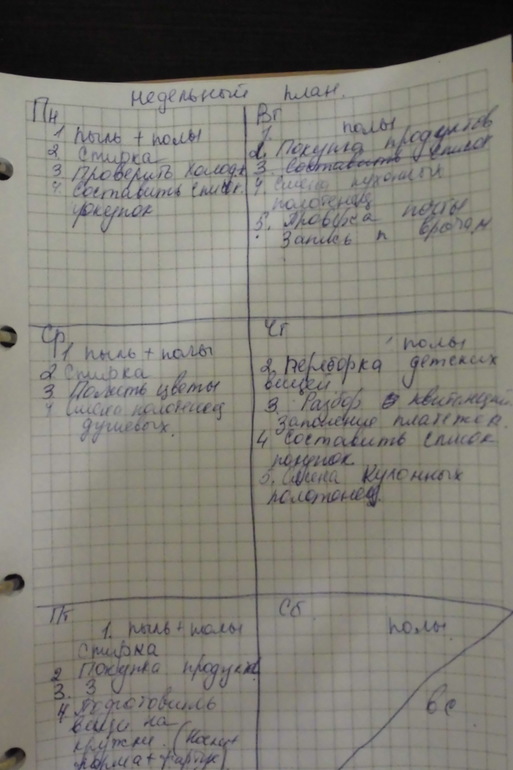 недельный план.
Пн
1 пыль + полы
2. Стирка
3 Проверить холод.
4. Составить список
покупок
Вт
1. полы
2. Покупка продуктов
3. составить список
4 смена кухонных
полотенец
5. Проверка почты
Запись к врачам
Ср
1 пыль + полы
2 Стирка
3. Полить цветы
4 смена полотенец
душевых
Чт
1 полы
2. Переборка детских
вещей
3 Разбор квитанций
Заполнение платежок
4 Составить список
покупок
5. Смена кухонных
полотенец
Пт
1. пыль + полы
стирка
2 Покупка продукт
3. З
4 Подготовить
вещи на
кружки. (носки
форма + фартук)
Сб
полы
Вс